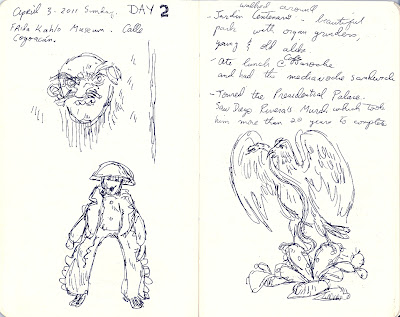 April 3 - 2011 Sunday. DAY 2
Frida Kahlo Museum. Calle
Coyoacán.
walked around
- Jardin Centenario - beautiful
park with organ grinders,
young & old alike.
- Ate lunch @
and had the medianoche sandwich
- Toured the Presidential Palace.
Saw Diego Rivera's Murals which took
him more than 20 years to complete